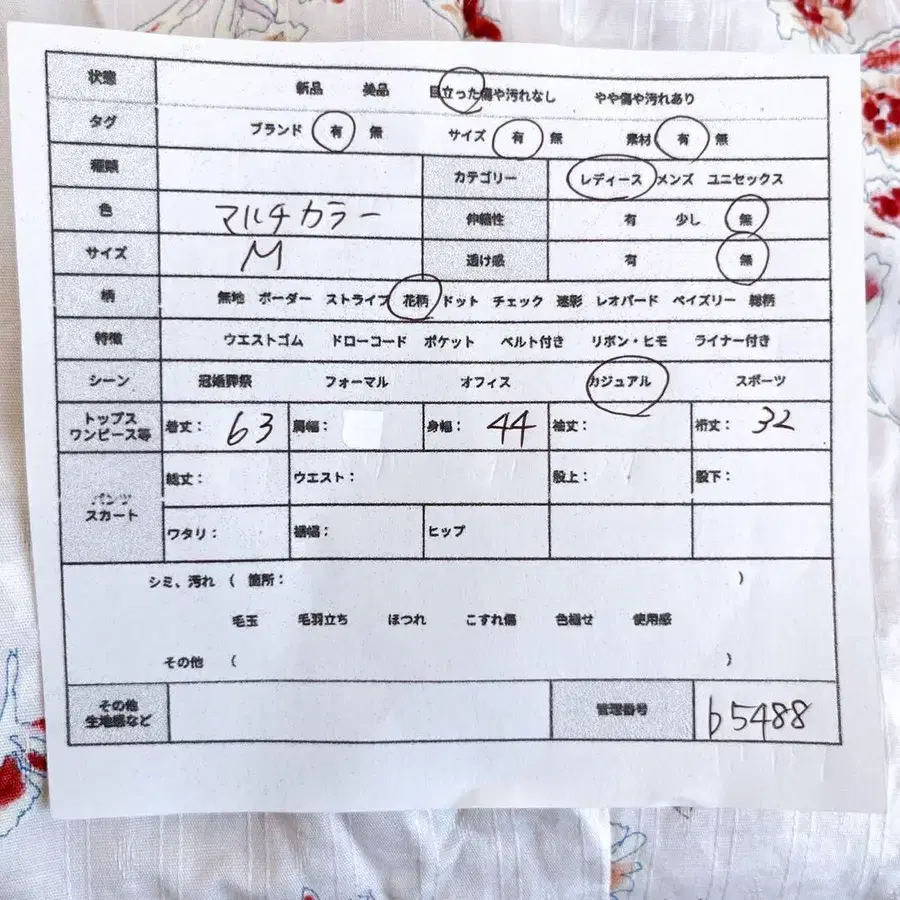 状態 新品 美品 目立った傷や汚れなし やや傷や汚れあり
タグ ブランド 有 無 サイズ 有 無 素材 有 無
種類 カテゴリー レディース メンズ ユニセックス
色 マルチカラー 伸縮性 有 少し 無
サイズ M 透け感 有 無
柄 無地 ボーダー ストライプ 花柄 ドット チェック 迷彩 レオパード ペイズリー 総柄
特徴 ウエストゴム ドローコード ポケット ベルト付き リボン・ヒモ ライナー付き
シーン 冠婚葬祭 フォーマル オフィス カジュアル スポーツ
トップス
ワンピース等 着丈： 63 肩幅： 身幅： 44 袖丈： 裄丈： 32
パンツ
スカート 総丈： ウエスト： 股上： 股下：
ワタリ： 裾幅： ヒップ
シミ、汚れ （ 箇所： ）
毛玉 毛羽立ち ほつれ こすれ傷 色褪せ 使用感
その他 （ ）
その他
生地感など 管理番号 b5488